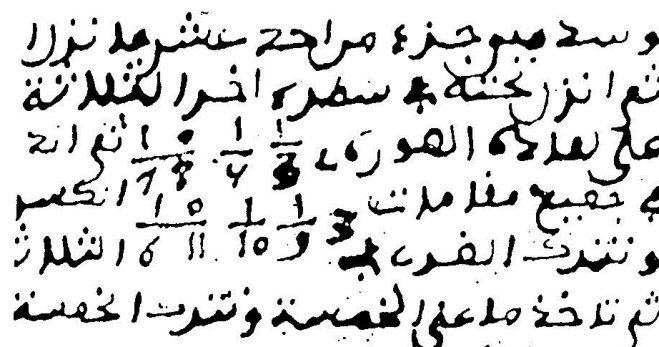 وجزء من احد عشر فانزل
ثم انزل تحته في سطر اخر الثلاثة
على هذه الصورة 1/4 1 0/7 8 ثم
في جميع مقامات 1/9 1/10 1 0/6 11 الكسر
وتترك الضرب في الثلاث
ثم تاخذ ما على الخمسة وتترك الخمسة